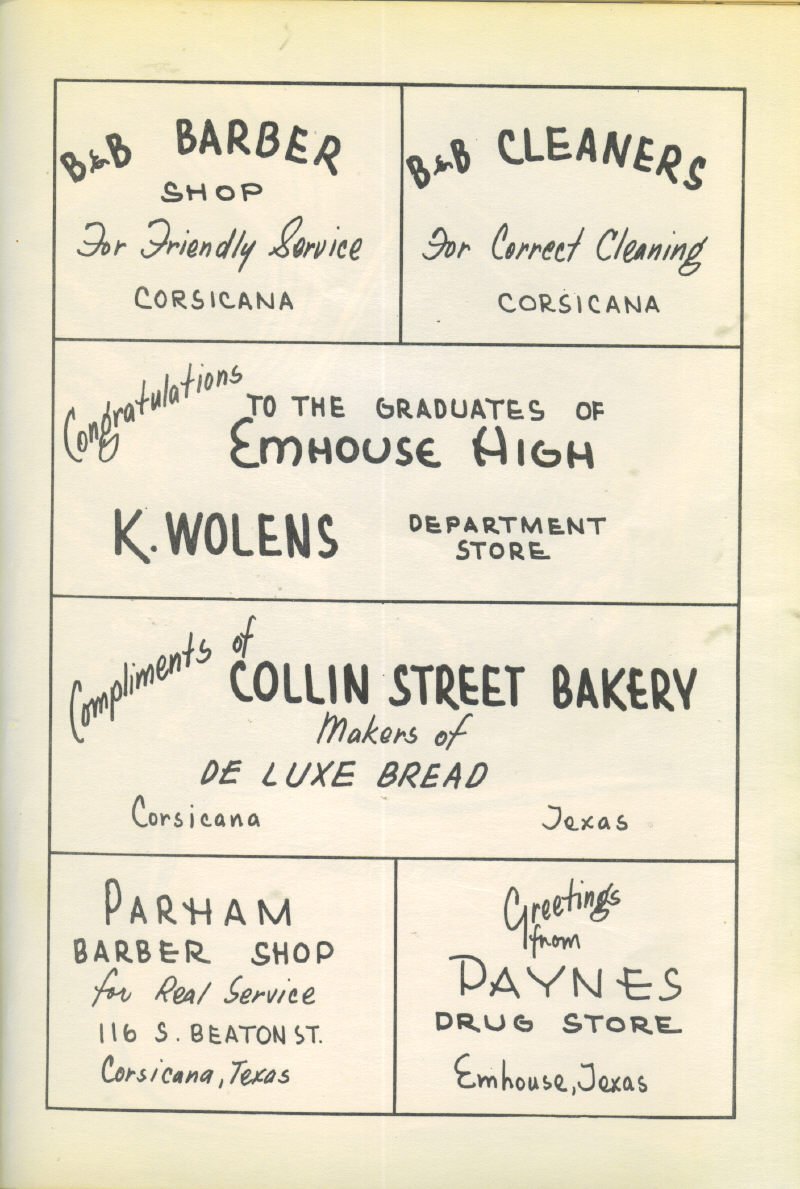 B&B BARBER
SHOP
For Friendly Service
CORSICANA
B&B CLEANERS
For Correct Cleaning
CORSICANA
Congratulations
TO THE GRADUATES OF
EMHOUSE HIGH
K. WOLENS
DEPARTMENT
STORE
Compliments of
COLLIN STREET BAKERY
Makers of
DE LUXE BREAD
Corsicana Texas
PARHAM
BARBER SHOP
for Real Service
116 S. BEATON ST.
Corsicana, Texas
Greetings
from
PAYNES
DRUG STORE
Emhouse, Texas